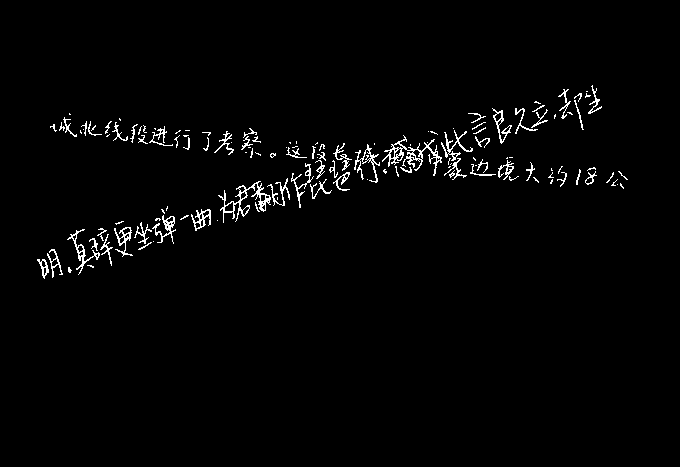 城北线段进行了考察。这段长城距中蒙边境大约18公
明。莫辞更坐弹一曲,为君翻作琵琶行。感我此言良久立,却坐